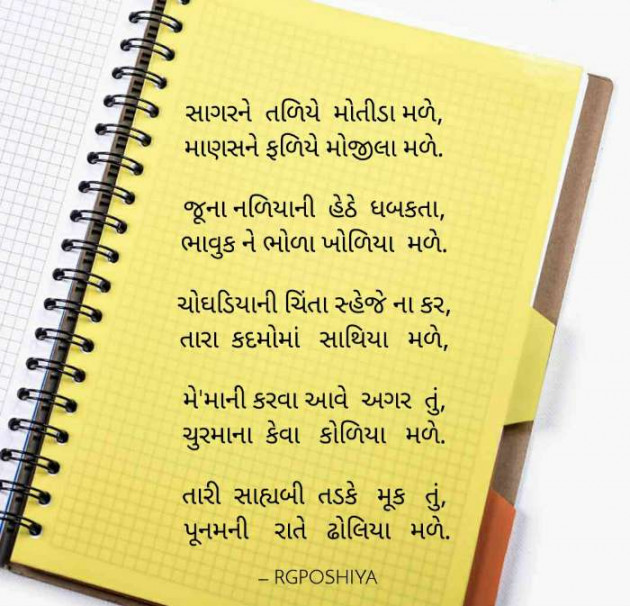 સાગરને તળિયે મોતીડા મળે,
માણસને ફળિયે મોજીલા મળે.
જૂના નળિયાની હેઠે ધબકતા,
ભાવુક ને ભોળા ખોળિયા મળે.
ચોઘડિયાની ચિંતા સ્હેજે ના કર,
તારા કદમોમાં સાથિયા મળે,
મે'માની કરવા આવે અગર તું,
ચુરમાના કેવા કોળિયા મળે.
તારી સાહ્યબી તડકે મૂક તું,
પૂનમની રાતે ઢોલિયા મળે.
– RGPOSHIYA